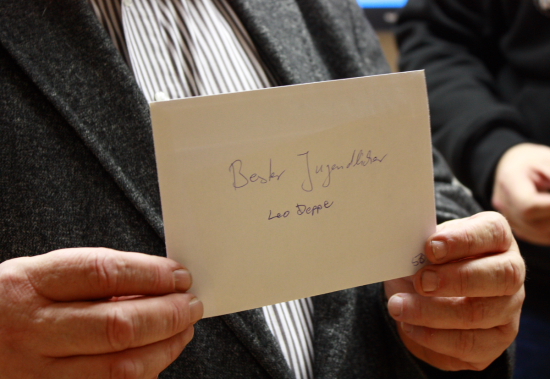 Bester Jugendlicher
Leo Deppe